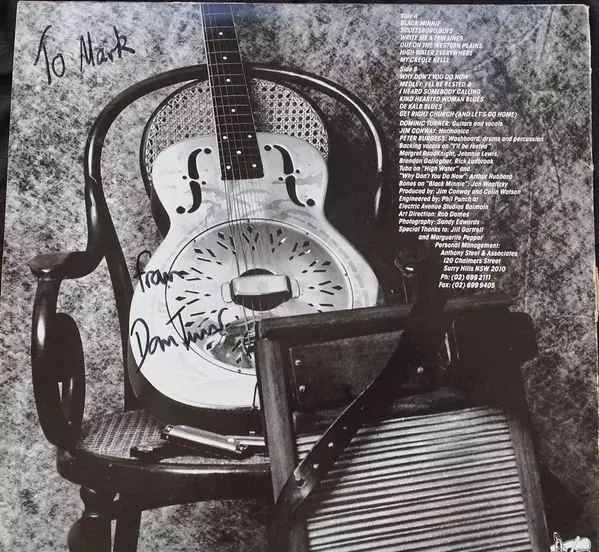 To Mark
from
Dom Turner
Side A
BLACK MINNIE
SCOTTSBORO BOYS
WRITE ME A FEW LINES
OUT ON THE WESTERN PLAINS
HIGH WATER EVERYWHERE
MY CREOLE BELLE
Side B
WHY DON'T YOU DO NOW
MEDLEY: I'LL BE RESTED &
I HEARD SOMEBODY CALLING
KIND HEARTED WOMAN BLUES
DE KALB BLUES
GET RIGHT CHURCH (AND LET'S GO HOME)
DOMINIC TURNER: Guitars and vocals
JIM CONWAY: Harmonica
PETER BURGESS: Washboard, drums and percussion
Backing vocals on "I'll be rested":
Margret Roadknight, Jeannie Lewis,
Brendan Gallagher, Rick Ludbrook
Tuba on "High Water" and
"Why Don't You Do Now": Arthur Hubbard
Bones on "Black Minnie": Jan Wositzky
Produced by: Jim Conway and Colin Watson
Engineered by: Phil Punch at
Electric Avenue Studios Balmain
Art Direction: Rob Dames
Photography: Sandy Edwards
Special Thanks to: Jill Gartrell
and Marguerite Pepper
Personal Management:
Anthony Steel & Associates
120 Chalmers Street
Surry Hills NSW 2010
Ph: (02) 699 2111
Fax: (02) 699 9405